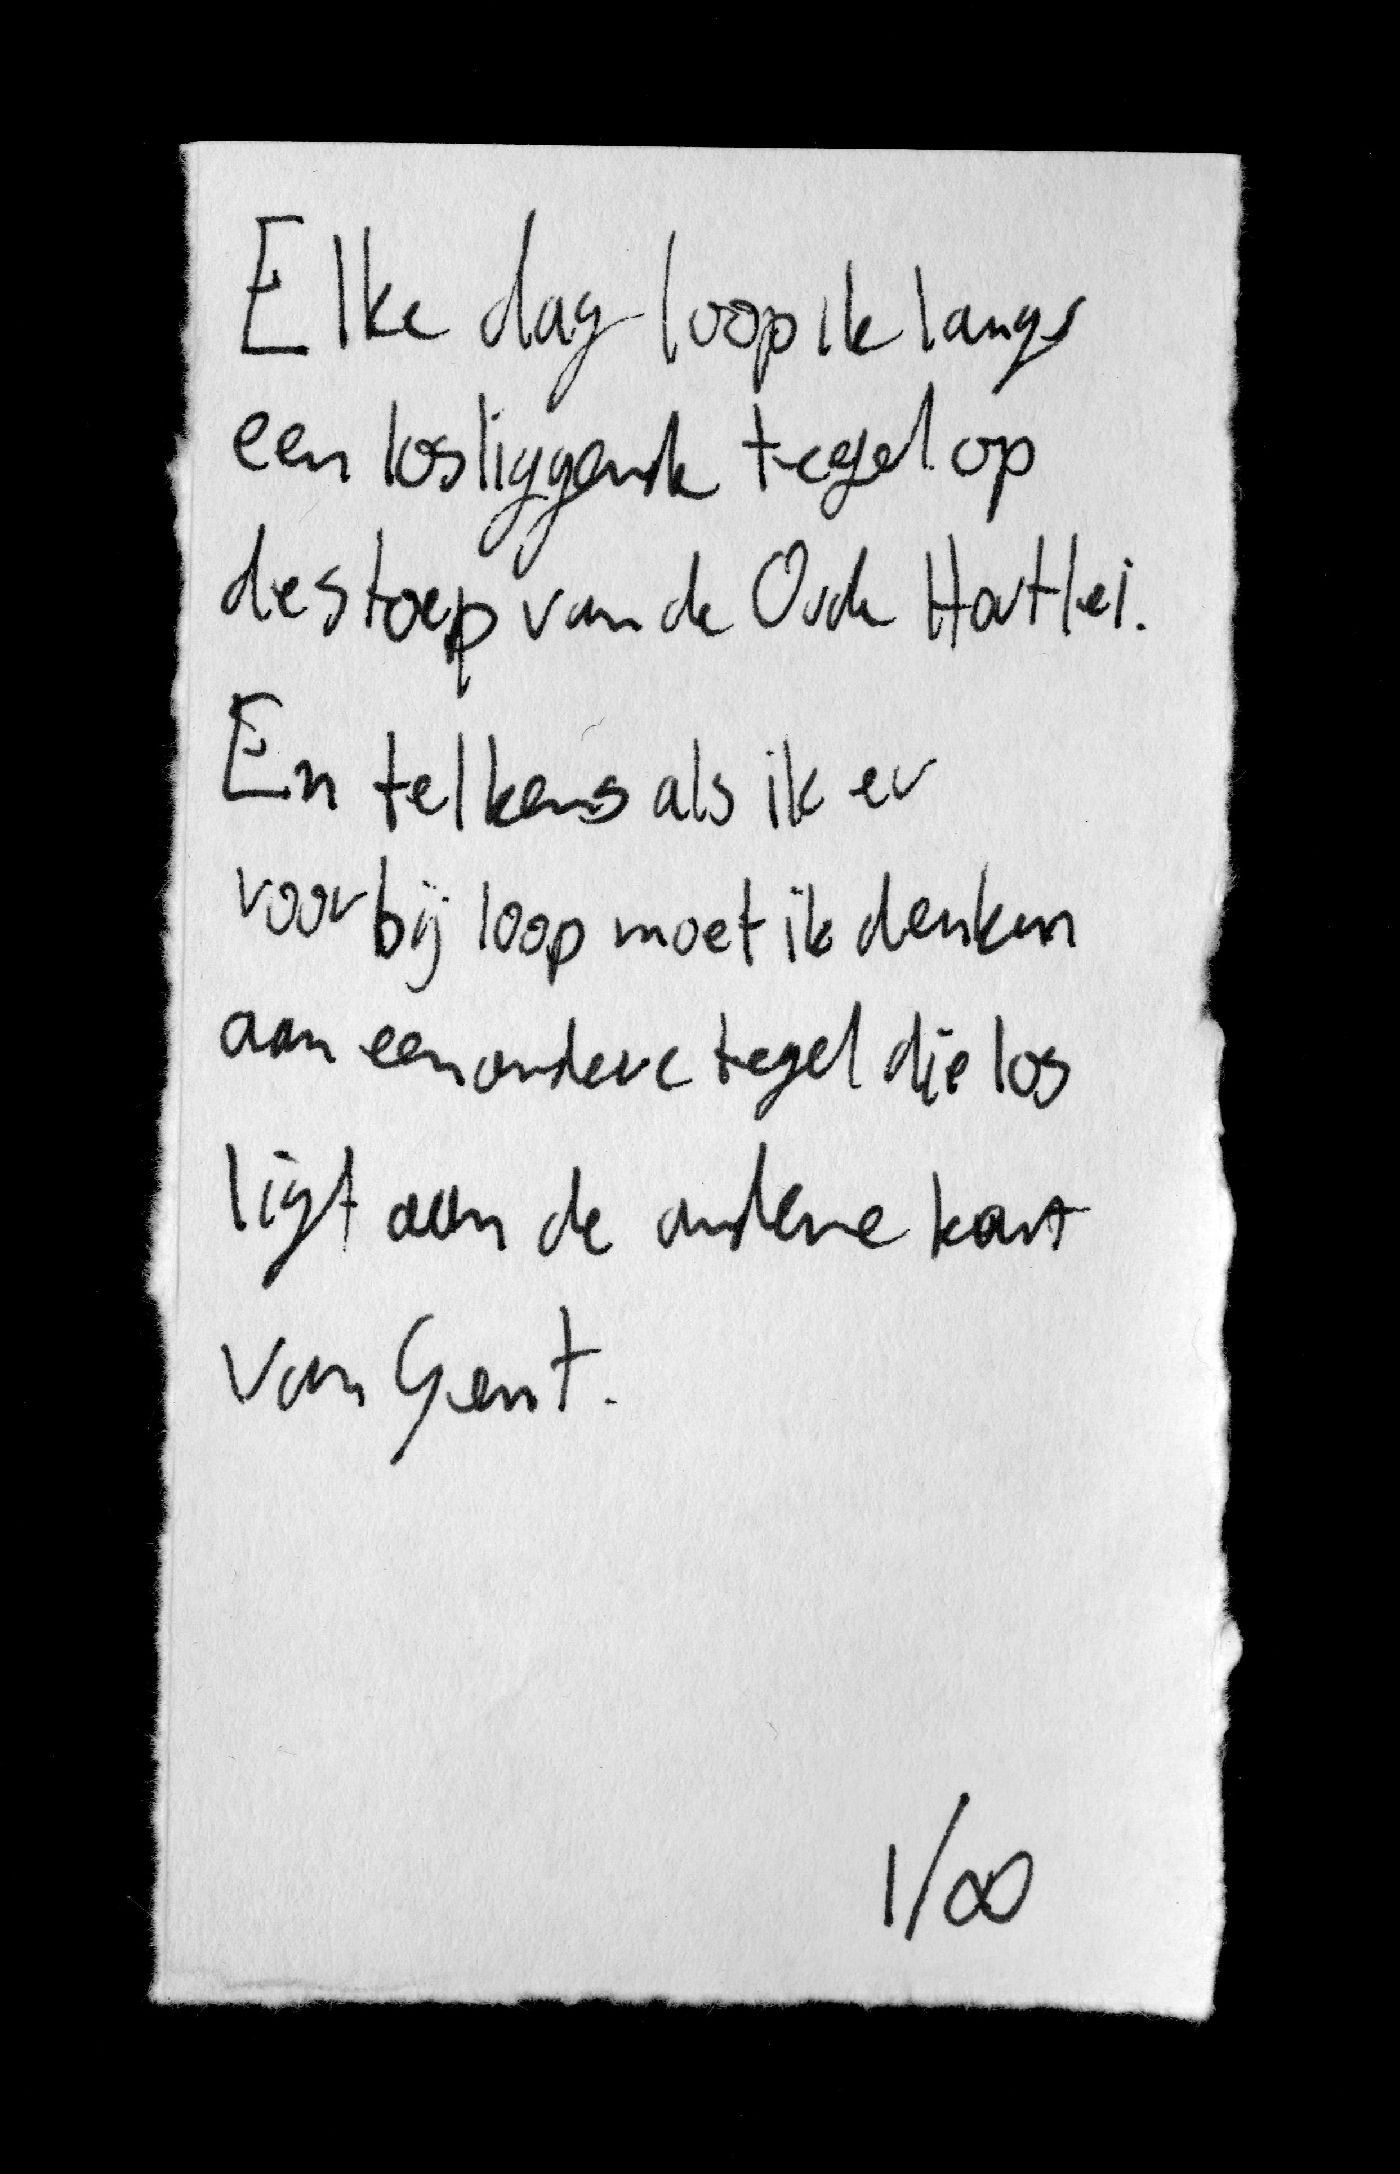 Elke dag loop ik langs
een losliggende tegel op
de stoep van de Oude Houtlei.
En telkens als ik er
voorbij loop moet ik denken
aan een andere tegel die los
ligt aan de andere kant
van Gent.
1/∞